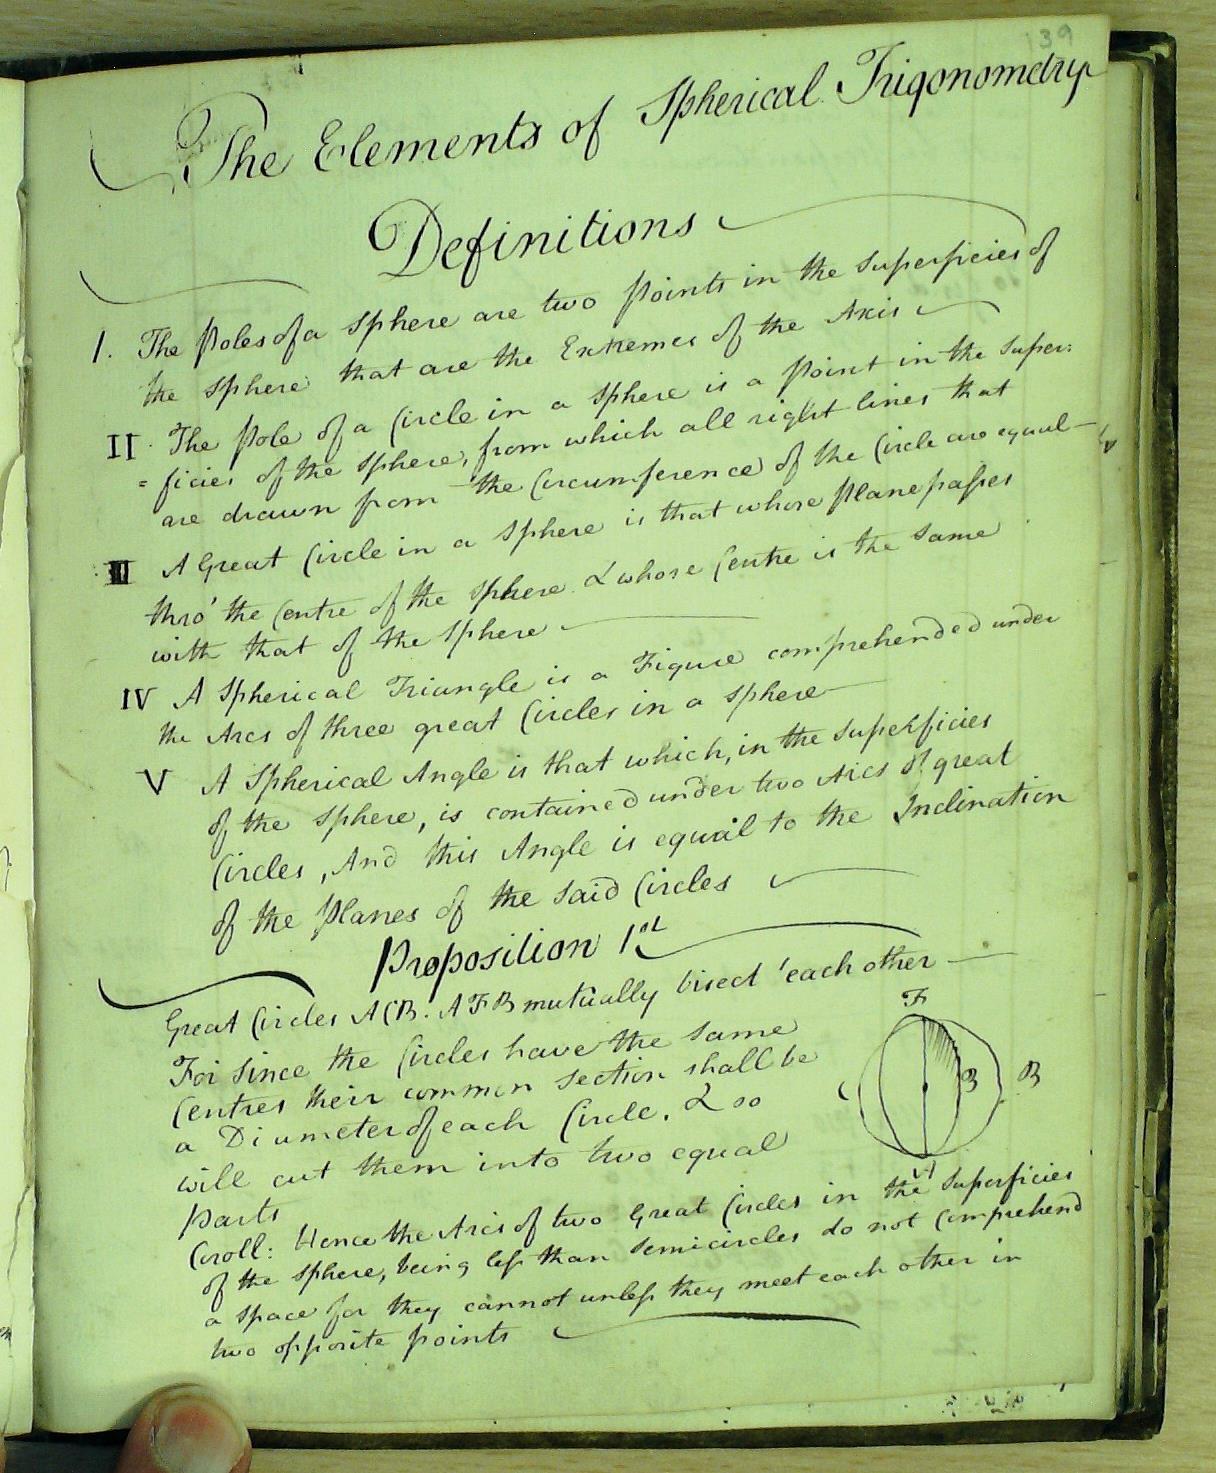 139
The Elements of Spherical Trigonometry
Definitions
I. The Poles of a Sphere are two Points in the Superficies of
the Sphere that are the Extremes of the Axis
II. The Pole of a Circle in a Sphere is a Point in the Super:
=ficies of the Sphere, from which all right lines that
are drawn from the Circumference of the Circle are equal
III A Great Circle in a Sphere is that whose Plane passes
thro' the Centre of the Sphere & whose Centre is the same
with that of the Sphere
IV A Spherical Triangle is a Figure comprehended under
the Arcs of three great Circles in a Sphere
V A Spherical Angle is that which, in the Superficies
of the Sphere, is contained under two Arcs of great
Circles, And this Angle is equal to the Inclination
of the Planes of the said Circles
Proposition 1st
Great Circles ACB. AFB mutually bisect each other
For since the Circles have the same
Centres their common section shall be
a Diameter of each Circle, & so
will cut them into two equal
Parts
F
B
B
C
Coroll: Hence the Arcs of two Great Circles in the Superficies
of the Sphere, being less than Semicircles do not Comprehend
a space for they cannot unless they meet each other in
two opposite points